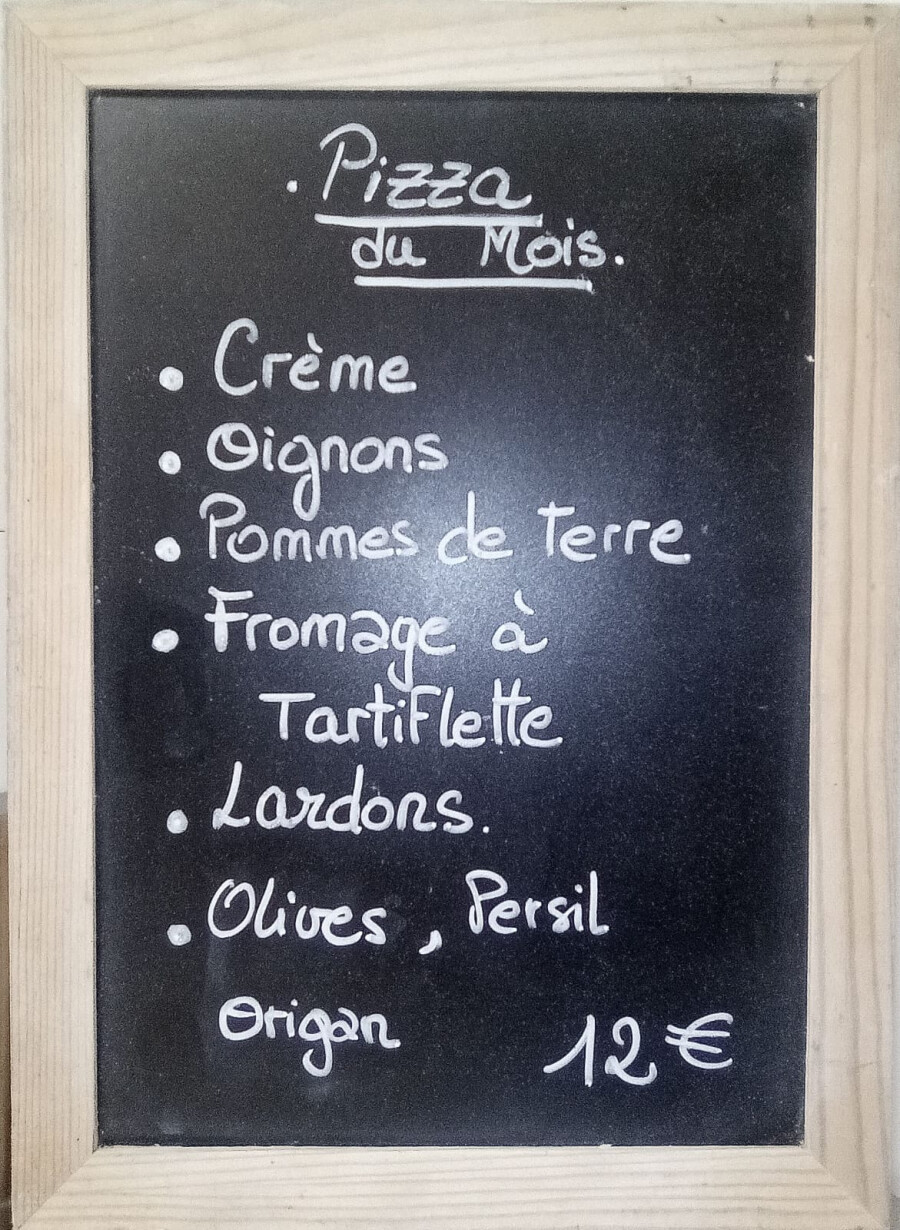 . Pizza
du Mois.
• Crème
• Oignons
• Pommes de Terre
• Fromage à
Tartiflette
• Lardons.
• Olives, Persil
Origan 12 €